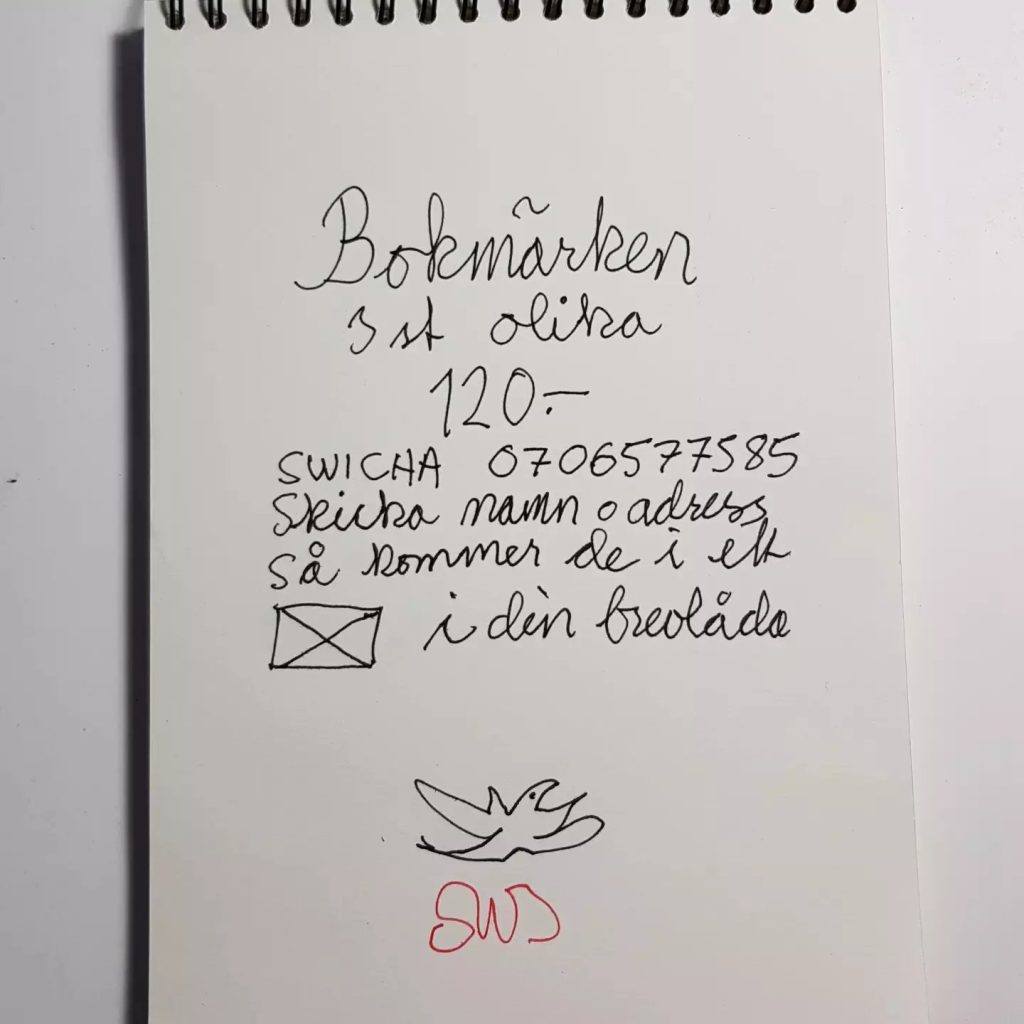 Bokmärken
3 st olika
120.-
SWICHA 0706577585
Skicka namn o adress
så kommer de i ett
i din brevlåda
SWS